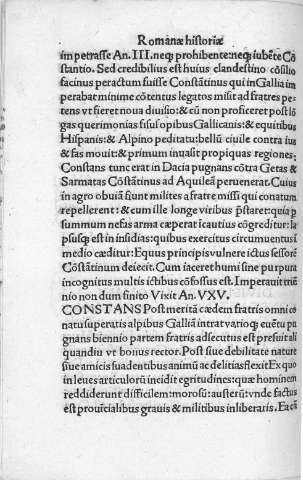 Romanæ historiæ
impetrasse An. III. neq; prohibente: neq; iubẽte Cõ
stantio. Sed credibilius est huius clandestino cõsilio
facinus peractum fuisse Constãtinus qui in Gallia im
perabat minime cõtentus legatos misit ad fratres pe⸗
tens vt fieret noua diuisio: & cũ non proficeret post lõ
gas querimonias fisus opibus Gallicanis: & equitibus
Hispanis: & Alpino peditatu: bellũ ciuile contra ius
& fas mouit: & primum inuasit propiquas regiones:
Constans tunc erat in Dacia pugnans cõtra Getas &
Sarmatas Cõstãtinus ad Aquileã peruenerat. Cuius
in agro obuiã sunt milites a fratre missi qui conatum
repellerent: & cum ille longe viribus p̃staret: quia p
summum nefas arma cæperat ĩcautius cõgreditur: la
psusq; est in insidias: quibus exercitus circumuentus ĩ
medio cæditur: Equus principis vulnere ictus sessorẽ
Cõstãtinum deiecit. Cum iaceret humi sine purpura
incognitus multis ictibus cõfossus est. Imperauit triẽ
nio non dum finito Vixit An. VXV.
CONSTANS Post merita cædem fratris omni co
natu superatis alpibus Galliã intrat varioq; euẽtu pu
gnans biennio partem fratris adsecutus est presuit ali
quandiu vt bonus rector. Post siue debilitate naturæ
siue amicis suadentibus animũ ac delitias flexit Ex quo
in leues articulorũ incidit egritudines: quæ hominem
reddiderunt difficilem: morosũ: austerũ: vnde factus
est prouĩcialibus grauis & militibus inliberalis. Ea cã